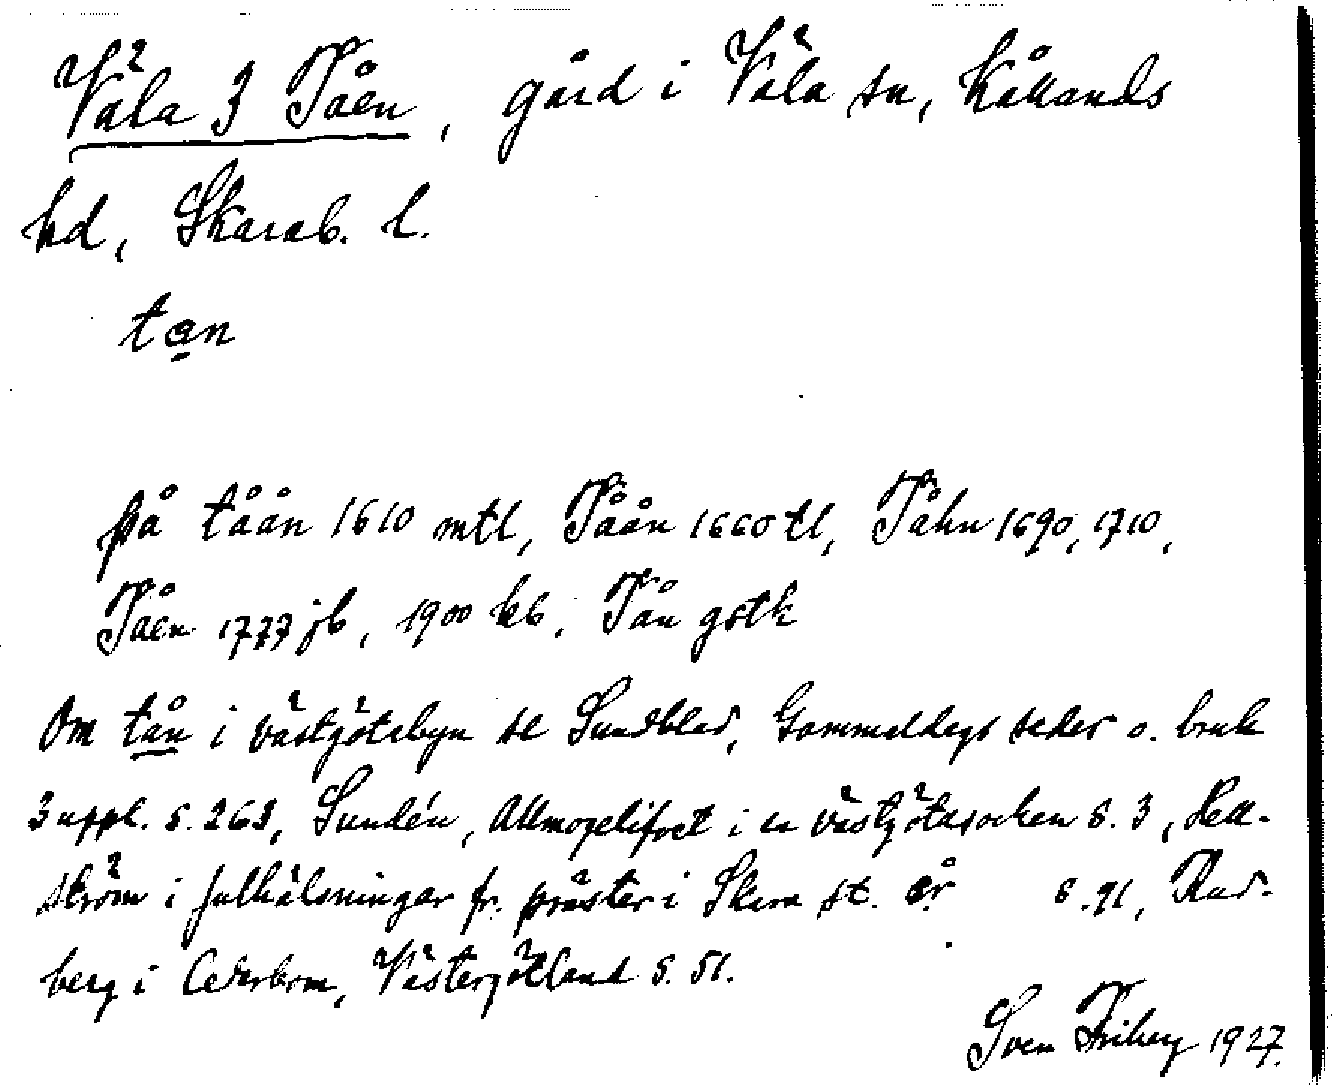 Väla 3 Tåen, gård i Väla sn, Kållands
hd, Skarab. l.
tan
på tåån 1610 mtl, Tåån 1660 tl, Tåhn 1690, 1710,
Tåen 1777 jb, 1900 kb. Tån gstk
Om tån i västgötabyn se Sundblad, Gammaldags seder o. bruk
3 uppl. s. 263, Sundén, Allmogelifvet i en västgötasocken s. 3, Hell-
ström i Julhälsningar fr. präster i Skara st. år s. 91, Rud-
berg i Cederbom, Västergötland s. 51.
Sven Friberg 1927.